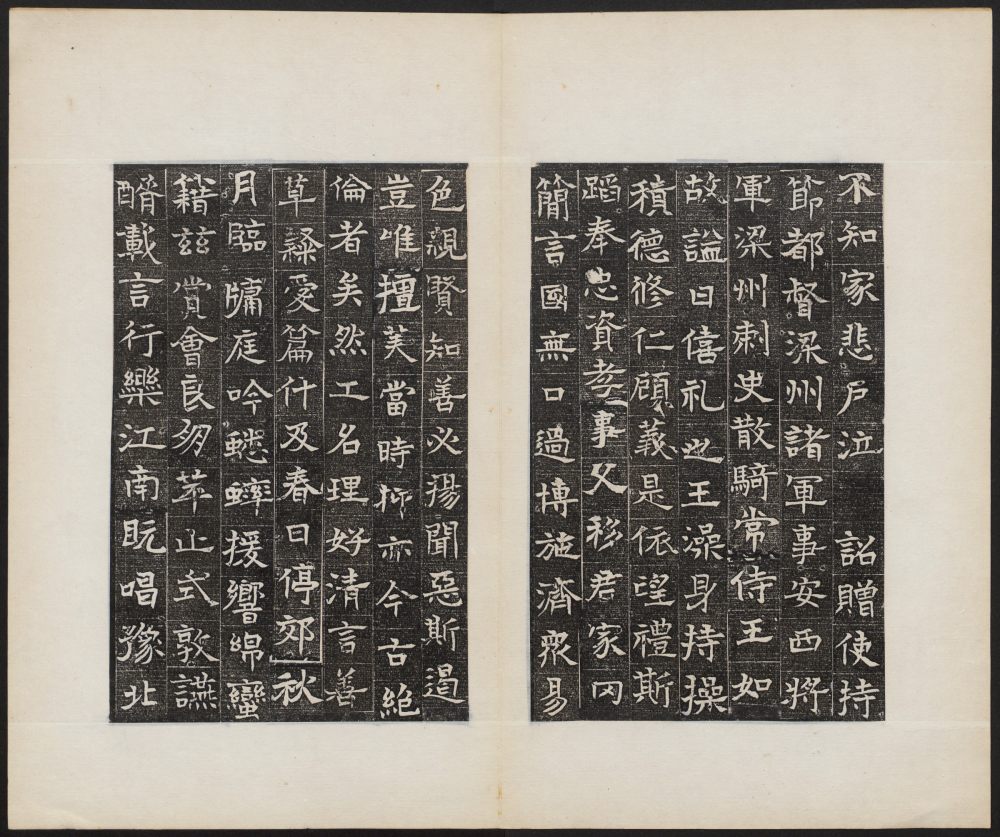 不知家悲戶泣 詔贈使持
節都督梁州諸軍事安西將
軍梁州刺史散騎常侍王如
故謚曰僖礼也王澡身持操
積德修仁顧義是依望禮斯
蹈奉忠資孝事父移君家冈
簡言國無口過博施濟衆易
色親賢知善必揚聞惡斯遏
豈唯擅美當時抑亦今古絶
倫者矣然工名理好清言善
草隸愛篇什及春日停郊秋
月臨牖庭吟蟋蟀援響綿蠻
籍兹賞會良朋萃止式敦讌
醑載言行樂江南既唱豫北